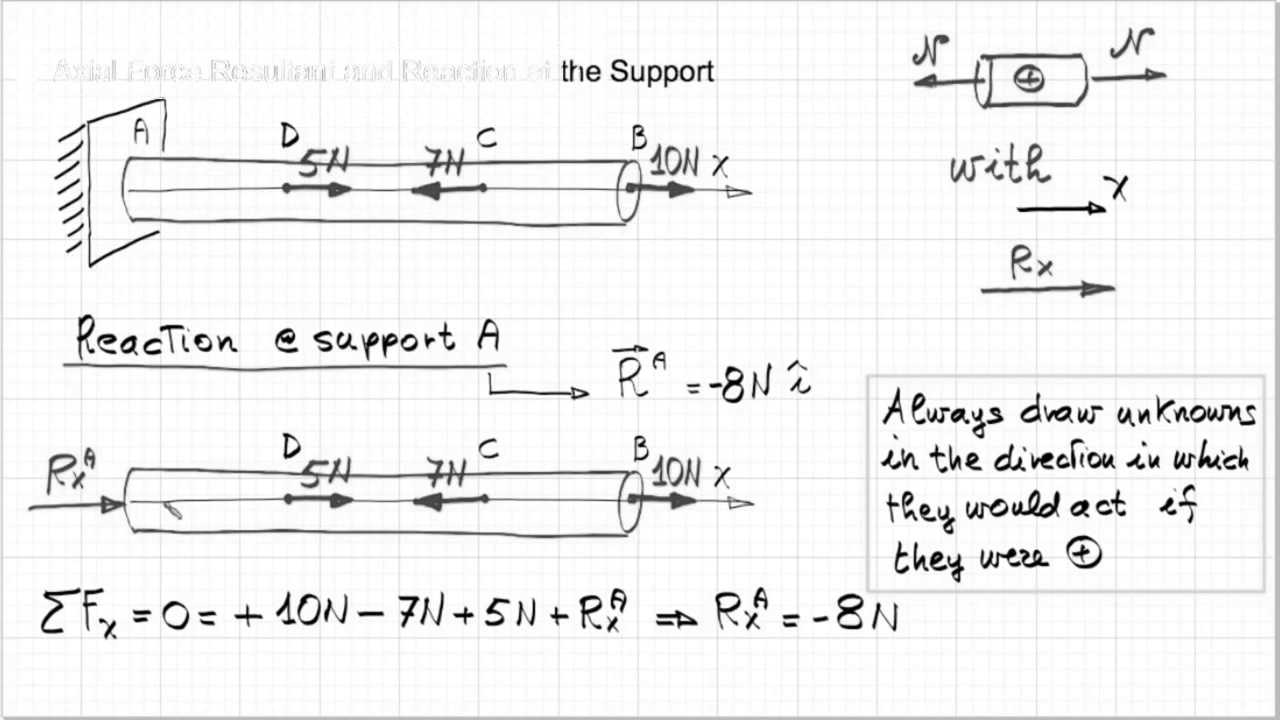 Axial Force Resultant and Reaction at the Support
N N
A D 5N 7N C B 10N x
with
x
Rx
Reaction @ support A
R^A = -8N î
Always draw unknowns
in the direction in which
they would act if
they were ⊕
Rx^A D 5N 7N C B 10N x
ΣFx = 0 = + 10N - 7N + 5N + Rx^A ⇒ Rx^A = -8N